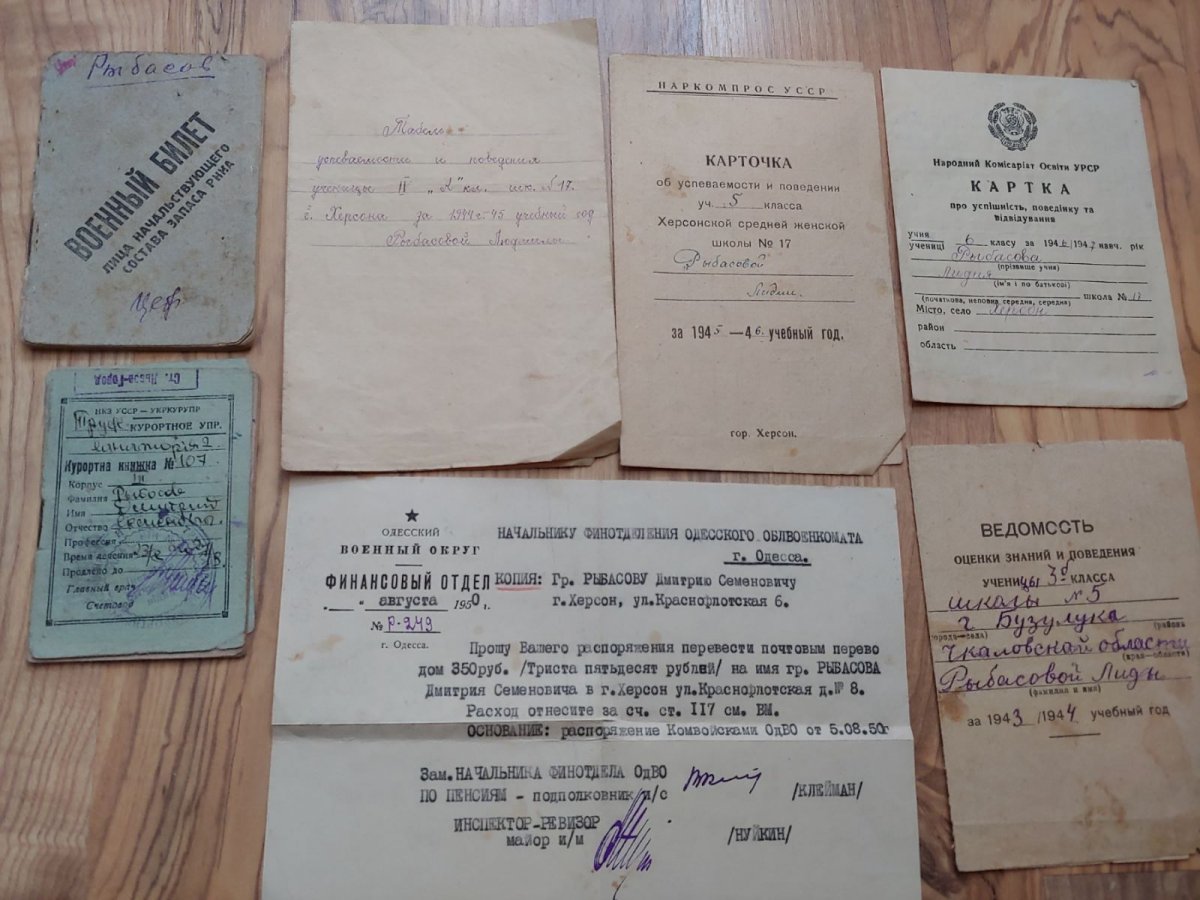 Рыбасов
ВОЕННЫЙ БИЛЕТ
ЛИЦА НАЧАЛЬСТВУЮЩЕГО
СОСТАВА ЗАПАСА РККА
Табель
успеваемости и поведения
ученицы "А" кл. шк. №17.
г. Херсона за 1944-45 учебный год
Рыбасовой Людмилы
НАРКОМПРОС УССР
КАРТОЧКА
об успеваемости и поведении
уч. 5 класса
Херсонской средней женской
школы № 17
Рыбасовой
Лидии
за 1945—46 учебный год.
гор. Херсон.
Народний Комісаріат Освіти УРСР
КАРТКА
про успішність, поведінку та
відвідування
учня
учениці 6 класу за 1946/1947 навч. рік
Рыбасова
(прізвище учня)
Лидия
(ім'я і по батькові)
школа № 17
(початкова, неповна середня, середня)
Місто, село Херсон
район
область
Ст. Львов-Город
НКЗ УССР — УКРКУРУПР
КУРОРТНОЕ УПР.
Курортна книжка № 107
Корпус
Фамилия
Имя Дмитрий
Отчество
Профессия
Время действия
Продлено до
Главный врач
Счетовод
ОДЕССКИЙ
ВОЕННЫЙ ОКРУГ
ФИНАНСОВЫЙ ОТДЕЛ
" августа 1950 г.
№ Р-249
г. Одесса.
НАЧАЛЬНИКУ ФИНОТДЕЛЕНИЯ ОДЕССКОГО ОБЛВОЕНКОМАТА
г. Одесса.
КОПИЯ: Гр. РЫБАСОВУ Дмитрию Семеновичу
г.Херсон, ул.Краснофлотская 6.
Прошу Вашего распоряжения перевести почтовым перево
дом 350руб. /Триста пятьдесят рублей/ на имя гр. РЫБАСОВА
Дмитрия Семеновича в г.Херсон ул.Краснофлотская д.№ 8.
Расход отнесите за сч. ст. II7 см. ВМ.
ОСНОВАНИЕ: распоряжение Комвойсками ОдВО от 5.08.50г
Зам.НАЧАЛЬНИКА ФИНОТДЕЛА ОдВО
ПО ПЕНСИЯМ - подполковник и/с /КЛЕЙМАН/
ИНСПЕКТОР-РЕВИЗОР
майор и/м /НУЙКИН/
ВЕДОМОСТЬ
ОЦЕНКИ ЗНАНИЙ И ПОВЕДЕНИЯ
УЧЕНИЦЫ 3 КЛАССА
школы №5
г Бузулука
(города—села) (района)
Чкаловской области
(края—области)
Рыбасовой Лиды
(фамилия и имя)
за 1943/1944 учебный год